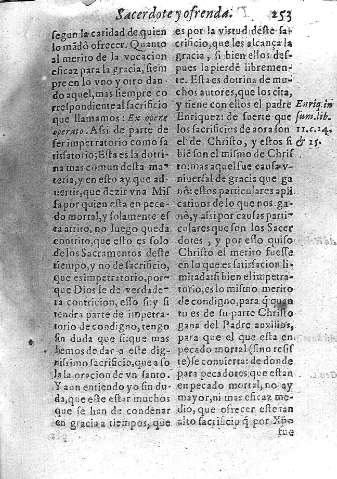 Sacerdote y ofrenda. 253
segun la caridad de quien
lo mãdò ofrecer. Quanto
al merito de la vocacion
eficaz para la gracia, siem
pre en lo vno y otro dan
do aquel, mas siempre co
rrespondiente al sacrificio
que llamamos: Ex opere
operato. Assi de parte de
ser impetratorio como sa
tisfatorio, Esta es la dotri
na mas comun desta ma-
teria, y en esto ay que ad-
uertir, que dezir vna Mis
sa por quien esta en peca
do mortal, y solamente es
ta atrito, no luego queda
contrito, que esto es solo
de los Sacramentos deste
tiempo, y no de sacrificio,
que es impetratorio, por-
que Dios le de verdade-
ra contricion, ello si: y si
tendra parte de impetra-
torio de condigno, tengo
sin duda que si: que mas
hemos de dar a este dig-
nissimo sacrificio, que a so
la la oracion de vn santo.
Y aun entiendo yo sin du-
da, que este estar muchos
que se han de condenar
en gracia a tiempos, que
es por la virtud deste sa
crificio, que les alcança la
gracia, si bien ellos des-
pues la pierdẽ libremen-
te. Esta es dotrina de mu-
chos autores, que los cita,
y tiene con ellos el padre
Enriquez: de suerte que
los sacrificios de aora son
el de Christo, y estos si
biẽ son el mismo de Chris
to: mas aquel fue causa v-
niuersal de gracia que ga
nò: estos particulares apli
cations de lo que nos ga-
nò, y assi por causas parti-
culares que son los Sacer
dotes, y por esso quiso
Christo el merito fuesse
en lo que es satisfacion li-
mitada: si bien el impetra-
torio, es lo mismo merito
de condigno, para q̃ quan
tu es de su parte Christo
gana del Padre auxilios,
para que el que esta en
pecado mortal (sino resis
te) se conuierta: de donde
para pecadores que estan
en pecado mortal, no ay
mayor, ni mas eficaz me-
dio, que ofrecer este tan
alto sacrificio q̃ por Xp̃o
fue
Enriq. in
sum. lib.
11. c. 14.
& 15.